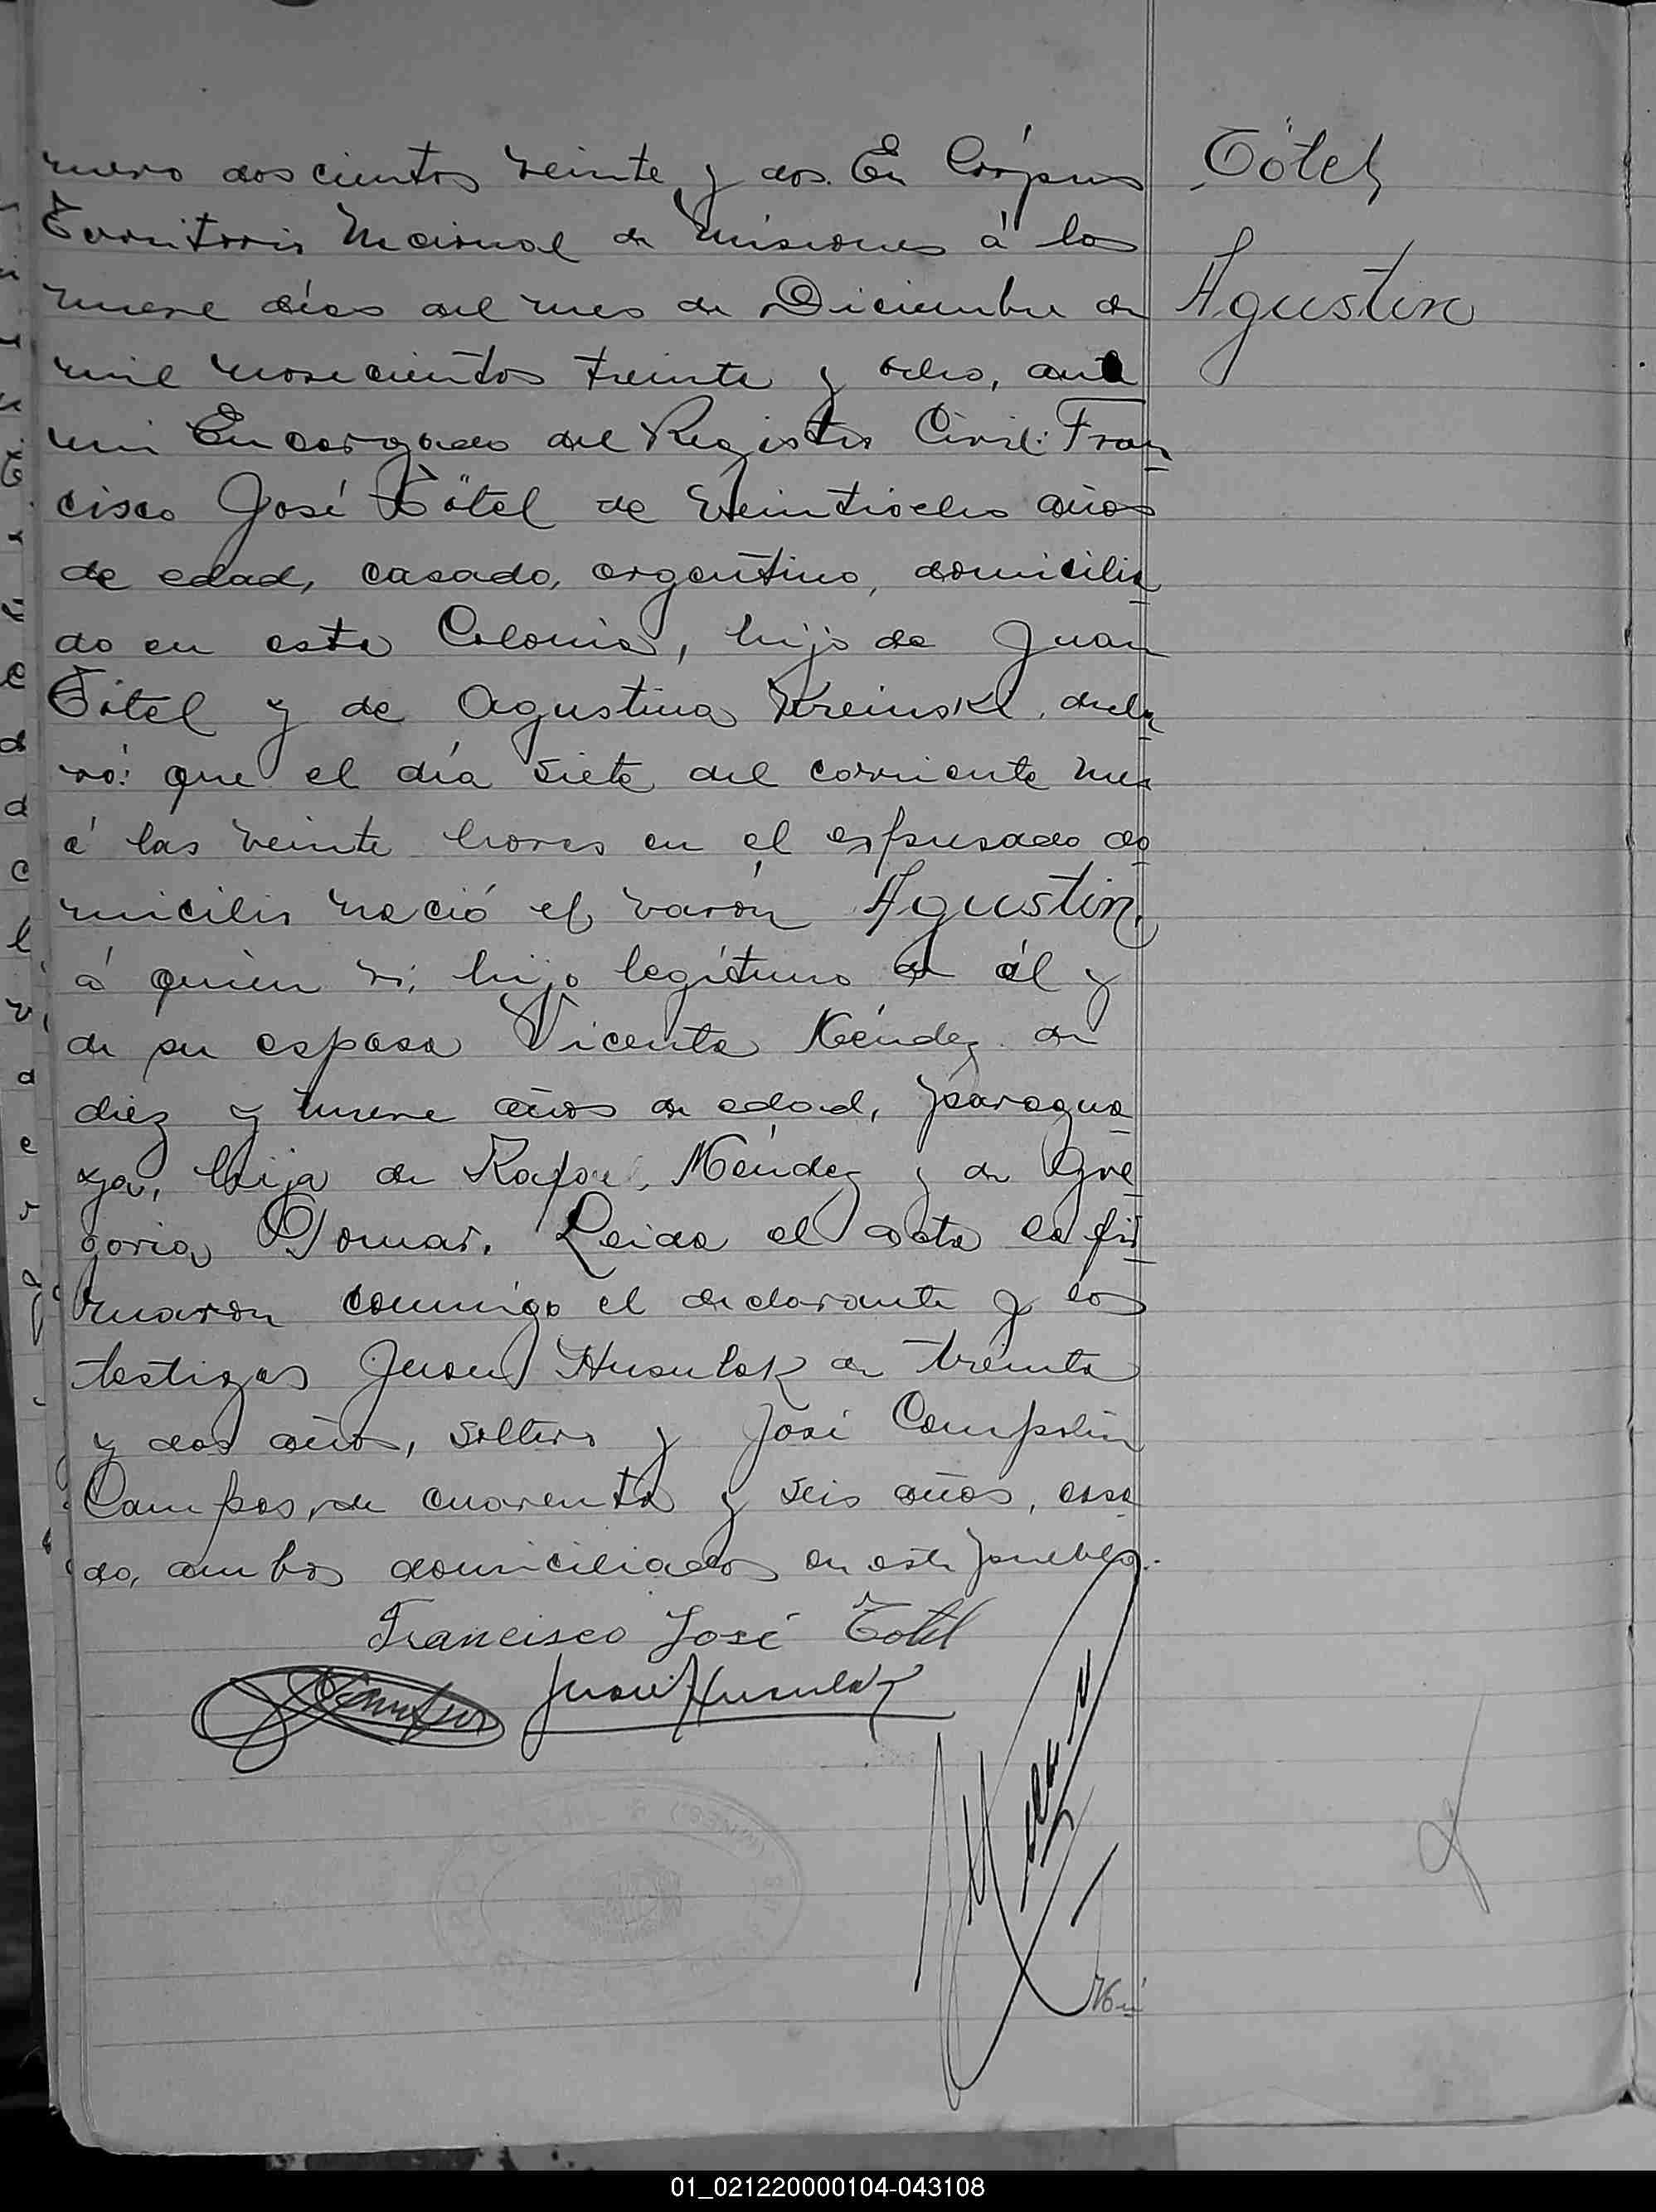 mero doscientos veinte y dos. En Córpus
Territorio Nacional de Misiones á los
nueve días del mes de Diciembre de
mil novecientos treinta y ocho, ante
mi Encargado del Registro Civil: Fran-
cisco José Tötel de veintiocho años
de edad, casado, argentino, domicilia-
do en esta Colonia, hijo de Juan
Tötel y de Agustina Kreinski, decla-
ró: que el día siete del corriente mes
á las veinte horas en el espresado do-
micilio nació el varón Agustin,
á quien ví, hijo legítimo de él y
de su esposa Vicenta Méndez de
diez y nueve años de edad, paragua-
ya, hija de Rafael Méndez y de Gre-
goria Gomar. Leida el acta la fir-
maron conmigo el declarante y los
testigos Juan Husulak de treinta
y dos años, soltero y José Campolin
Campos, de cuarenta y seis años, casa-
do, ambos domiciliados en este pueblo.
Francisco José Tötel
Juan Husulak
Tötel
Agustin
01_021220000104-043108